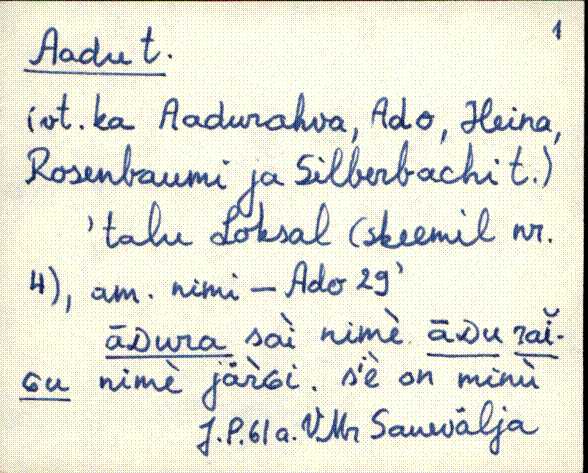 1
Aadu t.
(vt. ka Aadurahva, Ado, Heina,
Rosenbaumi ja Silberbachi t.)
'talu Loksal (skeemil nr.
4), am. nimi – Ado 29'
āDura sai̇̀ nimè āDu raǐ-
Gu nimè jäřGi. s'è on minù
J.P. 61 a. VMr Sauevälja